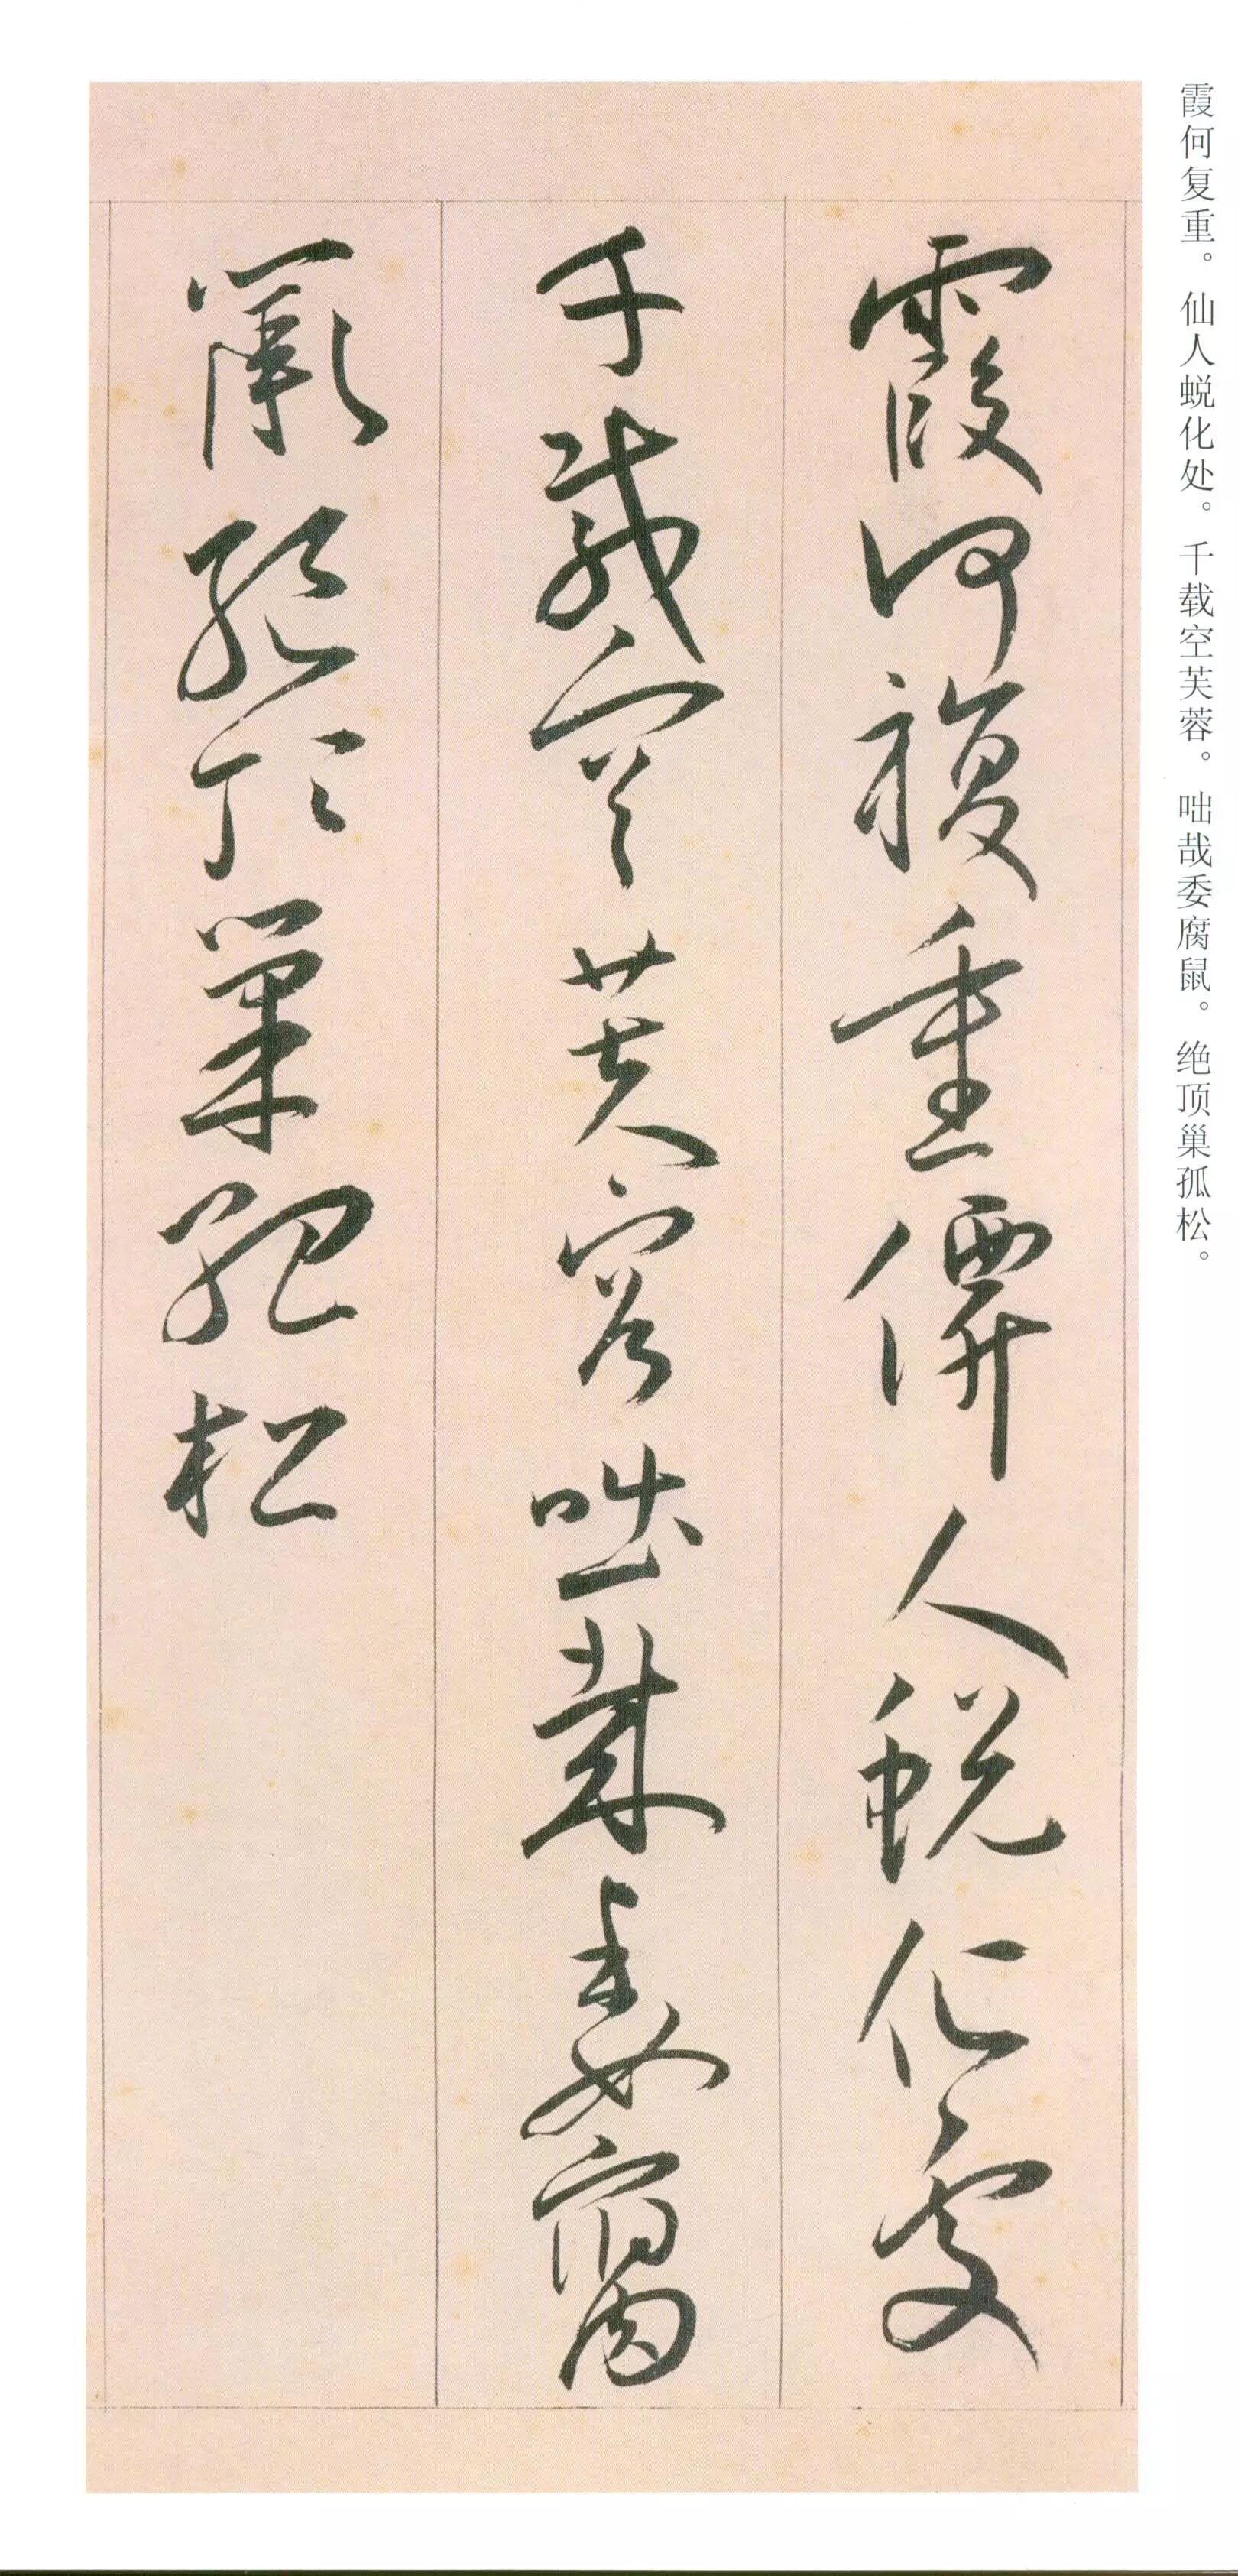 霞何复重。仙人蜕化处。千载空芙蓉。咄哉委腐鼠。绝顶巢孤松。
霞何複重僊人蜕化處
千載空芙容咄哉委腐
鼠絕頂巢孤松